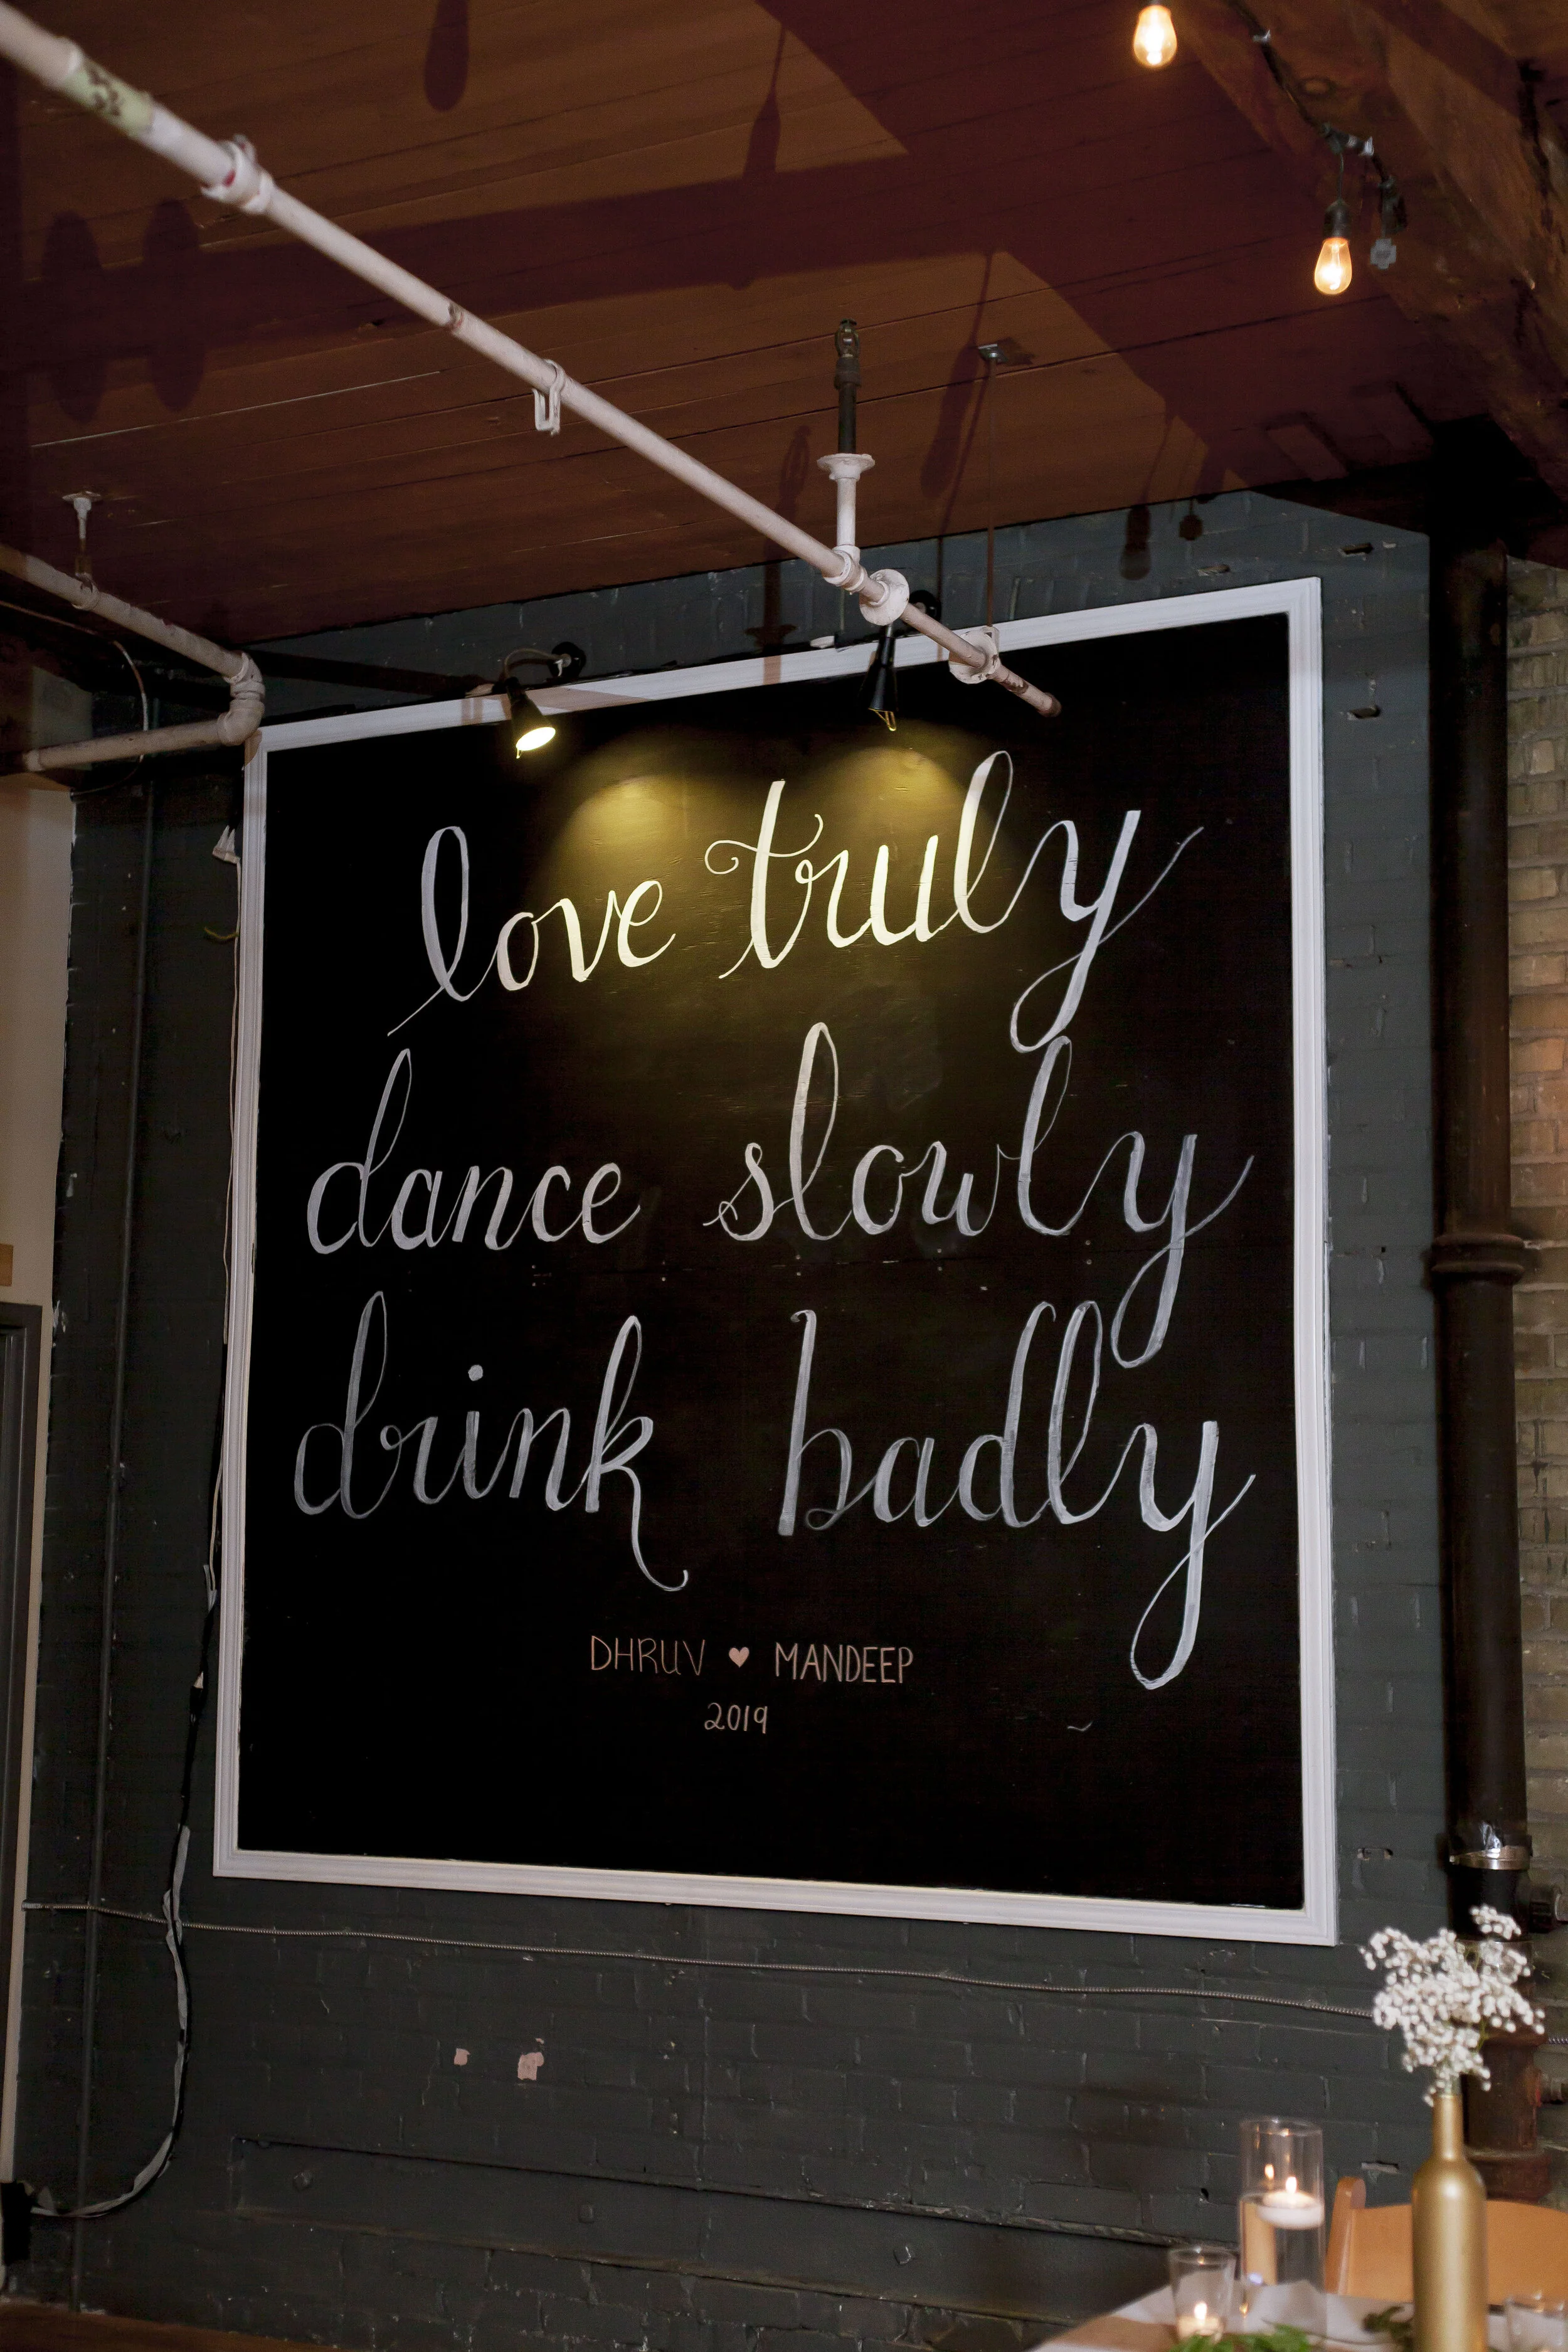 love truly
dance slowly
drink badly
DHRUV ♥ MANDEEP
2019